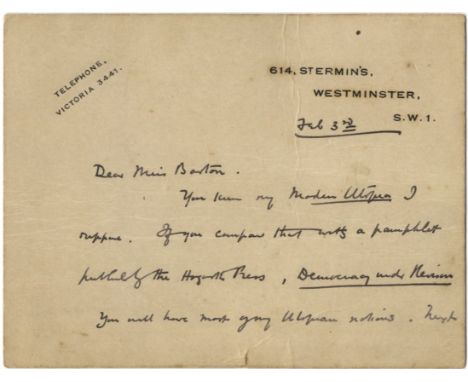 TELEPHONE,
VICTORIA 3441.
614, ST ERMIN'S,
WESTMINSTER,
S.W.1.
Feb 3rd
Dear Miss Barton.
You know my Modern Utopia I
suppose. If you compare that with a pamphlet
publd by the Hogarth Press, Democracy under Revision
You will have most of my Utopian notions.